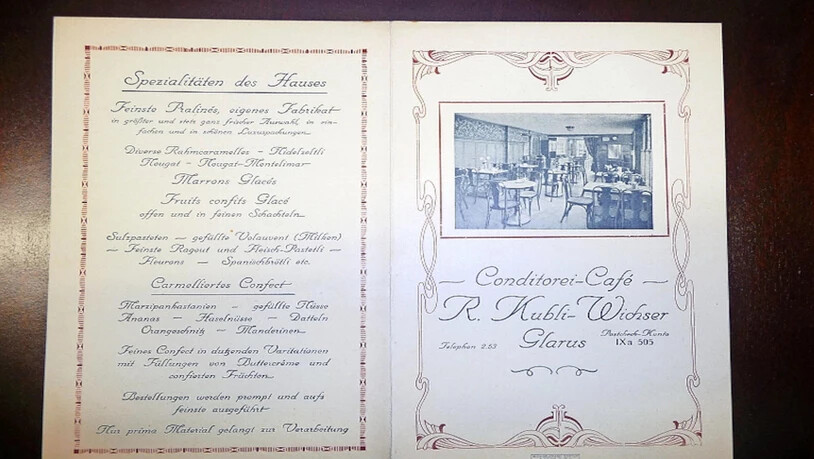 Spezialitäten des Hauses
Feinste Pralinés, eigenes Fabrikat
in größter und stets ganz frischer Auswahl, in ein-
fachen und in schönen Luxuspackungen
Diverse Rahmcaramelles – Nidelzeltli
Nougat – Nougat-Montelimar
Marrons Glacés
Fruits confits Glacé
offen und in feinen Schachteln
Sulzpasteten – gefüllte Volauvent (Milken)
– Feinste Ragout und Fleisch-Pastetli –
Fleurons – Spanischbrötli etc.
Carmelliertes Confect
Marzipankastanien – gefüllte Nüsse
Ananas – Haselnüsse – Datteln
Orangeschnitz – Mandarinen
Feines Confect in dutzenden Varitationen
mit Füllungen von Buttercrème und
confierten Früchten
Bestellungen werden prompt und aufs
feinste ausgeführt
Nur prima Material gelangt zur Verarbeitung
– Conditorei-Café –
R. Kubli-Wichser
Telephon 2.53
Glarus
Postcheck-Konto
IXa 505